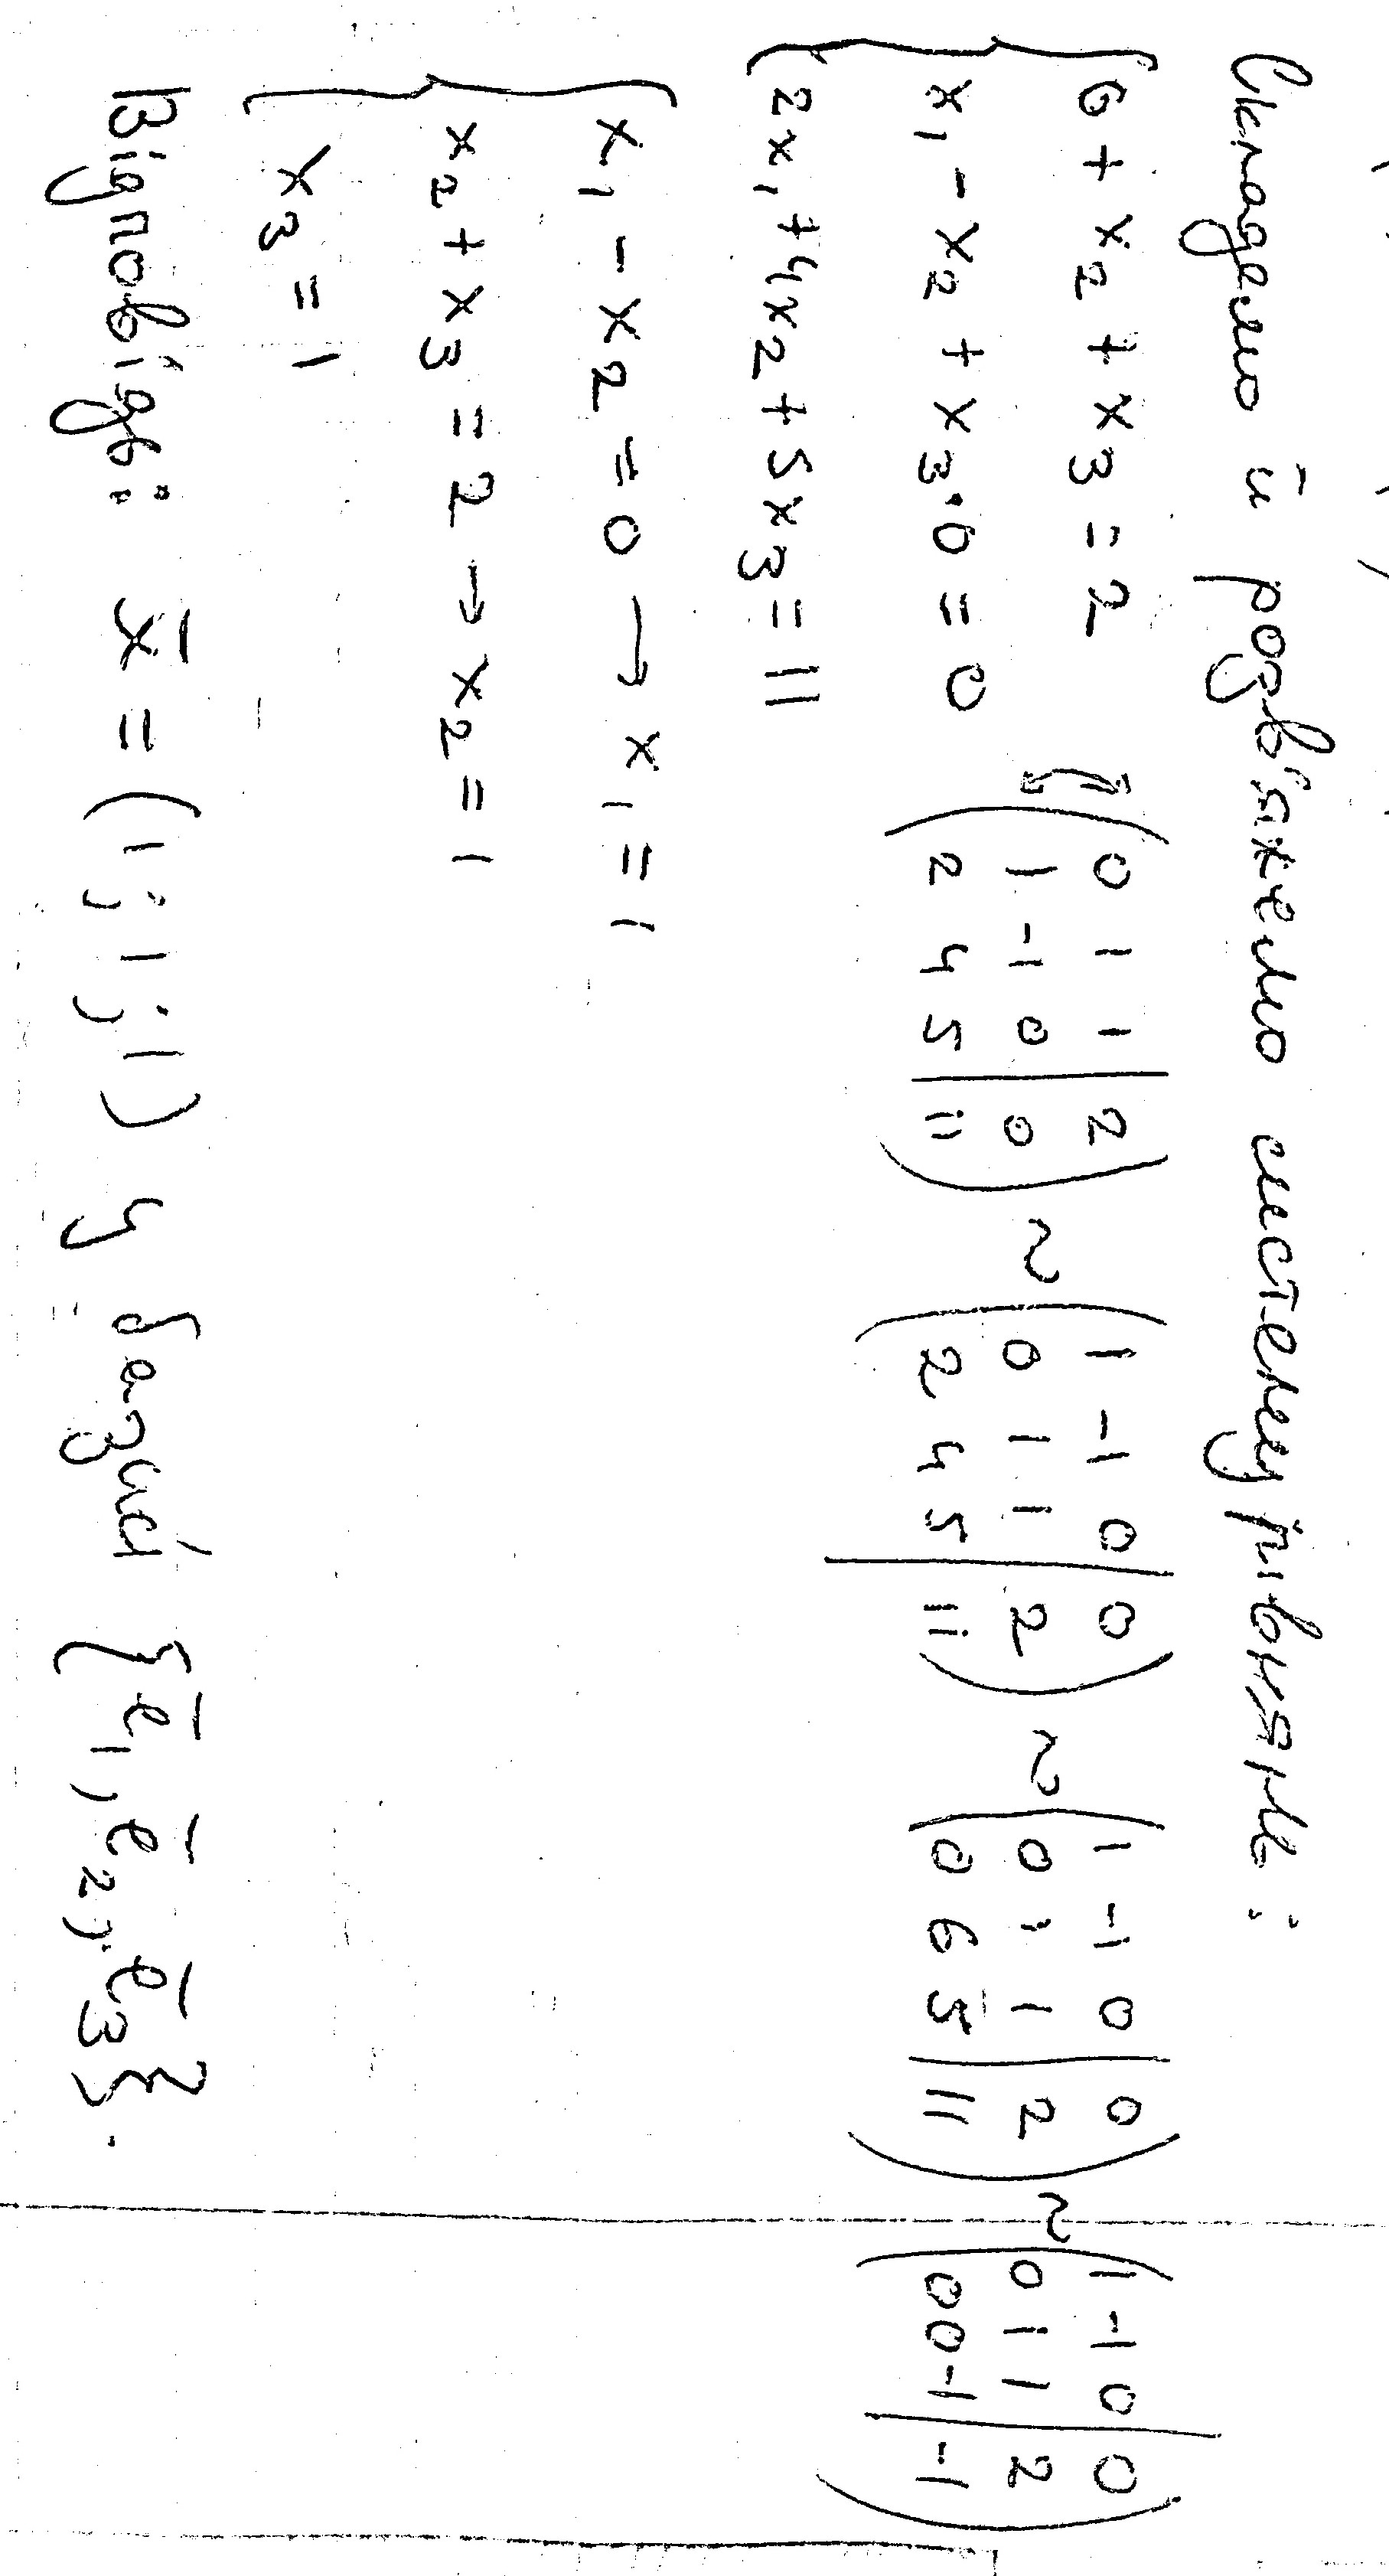 Складемо й розв'яжемо систему рівнянь:
{ 0 + x₂ + x₃ = 2
x₁ - x₂ + x₃·0 = 0
2x₁ + 4x₂ + 5x₃ = 11
( 0 1 1 | 2
1 -1 0 | 0
2 4 5 | 11 ) ~
( 1 -1 0 | 0
0 1 1 | 2
2 4 5 | 11 ) ~
( 1 -1 0 | 0
0 1 1 | 2
0 6 5 | 11 ) ~
( 1 -1 0 | 0
0 1 1 | 2
0 0 -1 | -1 )
{ x₁ - x₂ = 0 → x₁ = 1
x₂ + x₃ = 2 → x₂ = 1
x₃ = 1
Відповідь: x̄ = (1; 1; 1) у базисі {ē₁, ē₂, ē₃}.